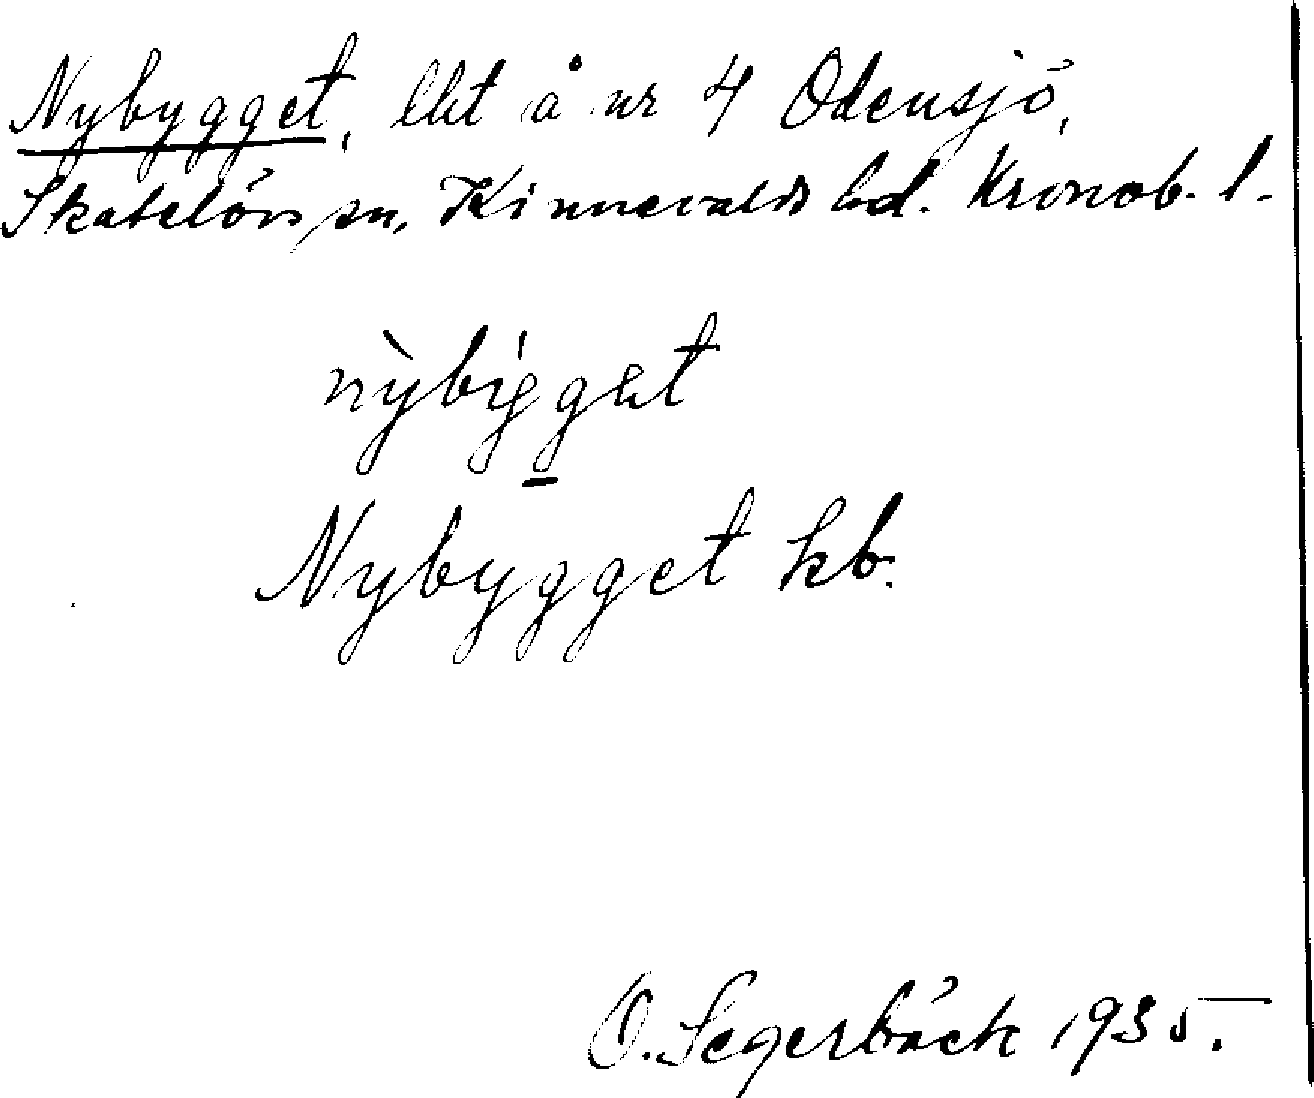 Nybygget, lht å nr 4 Odensjö,
Skatelövs sn, Kinnevalds hd. Kronob. l.
nỳbig̲get
Nybygget kb.
O. Segerbäck 1935.